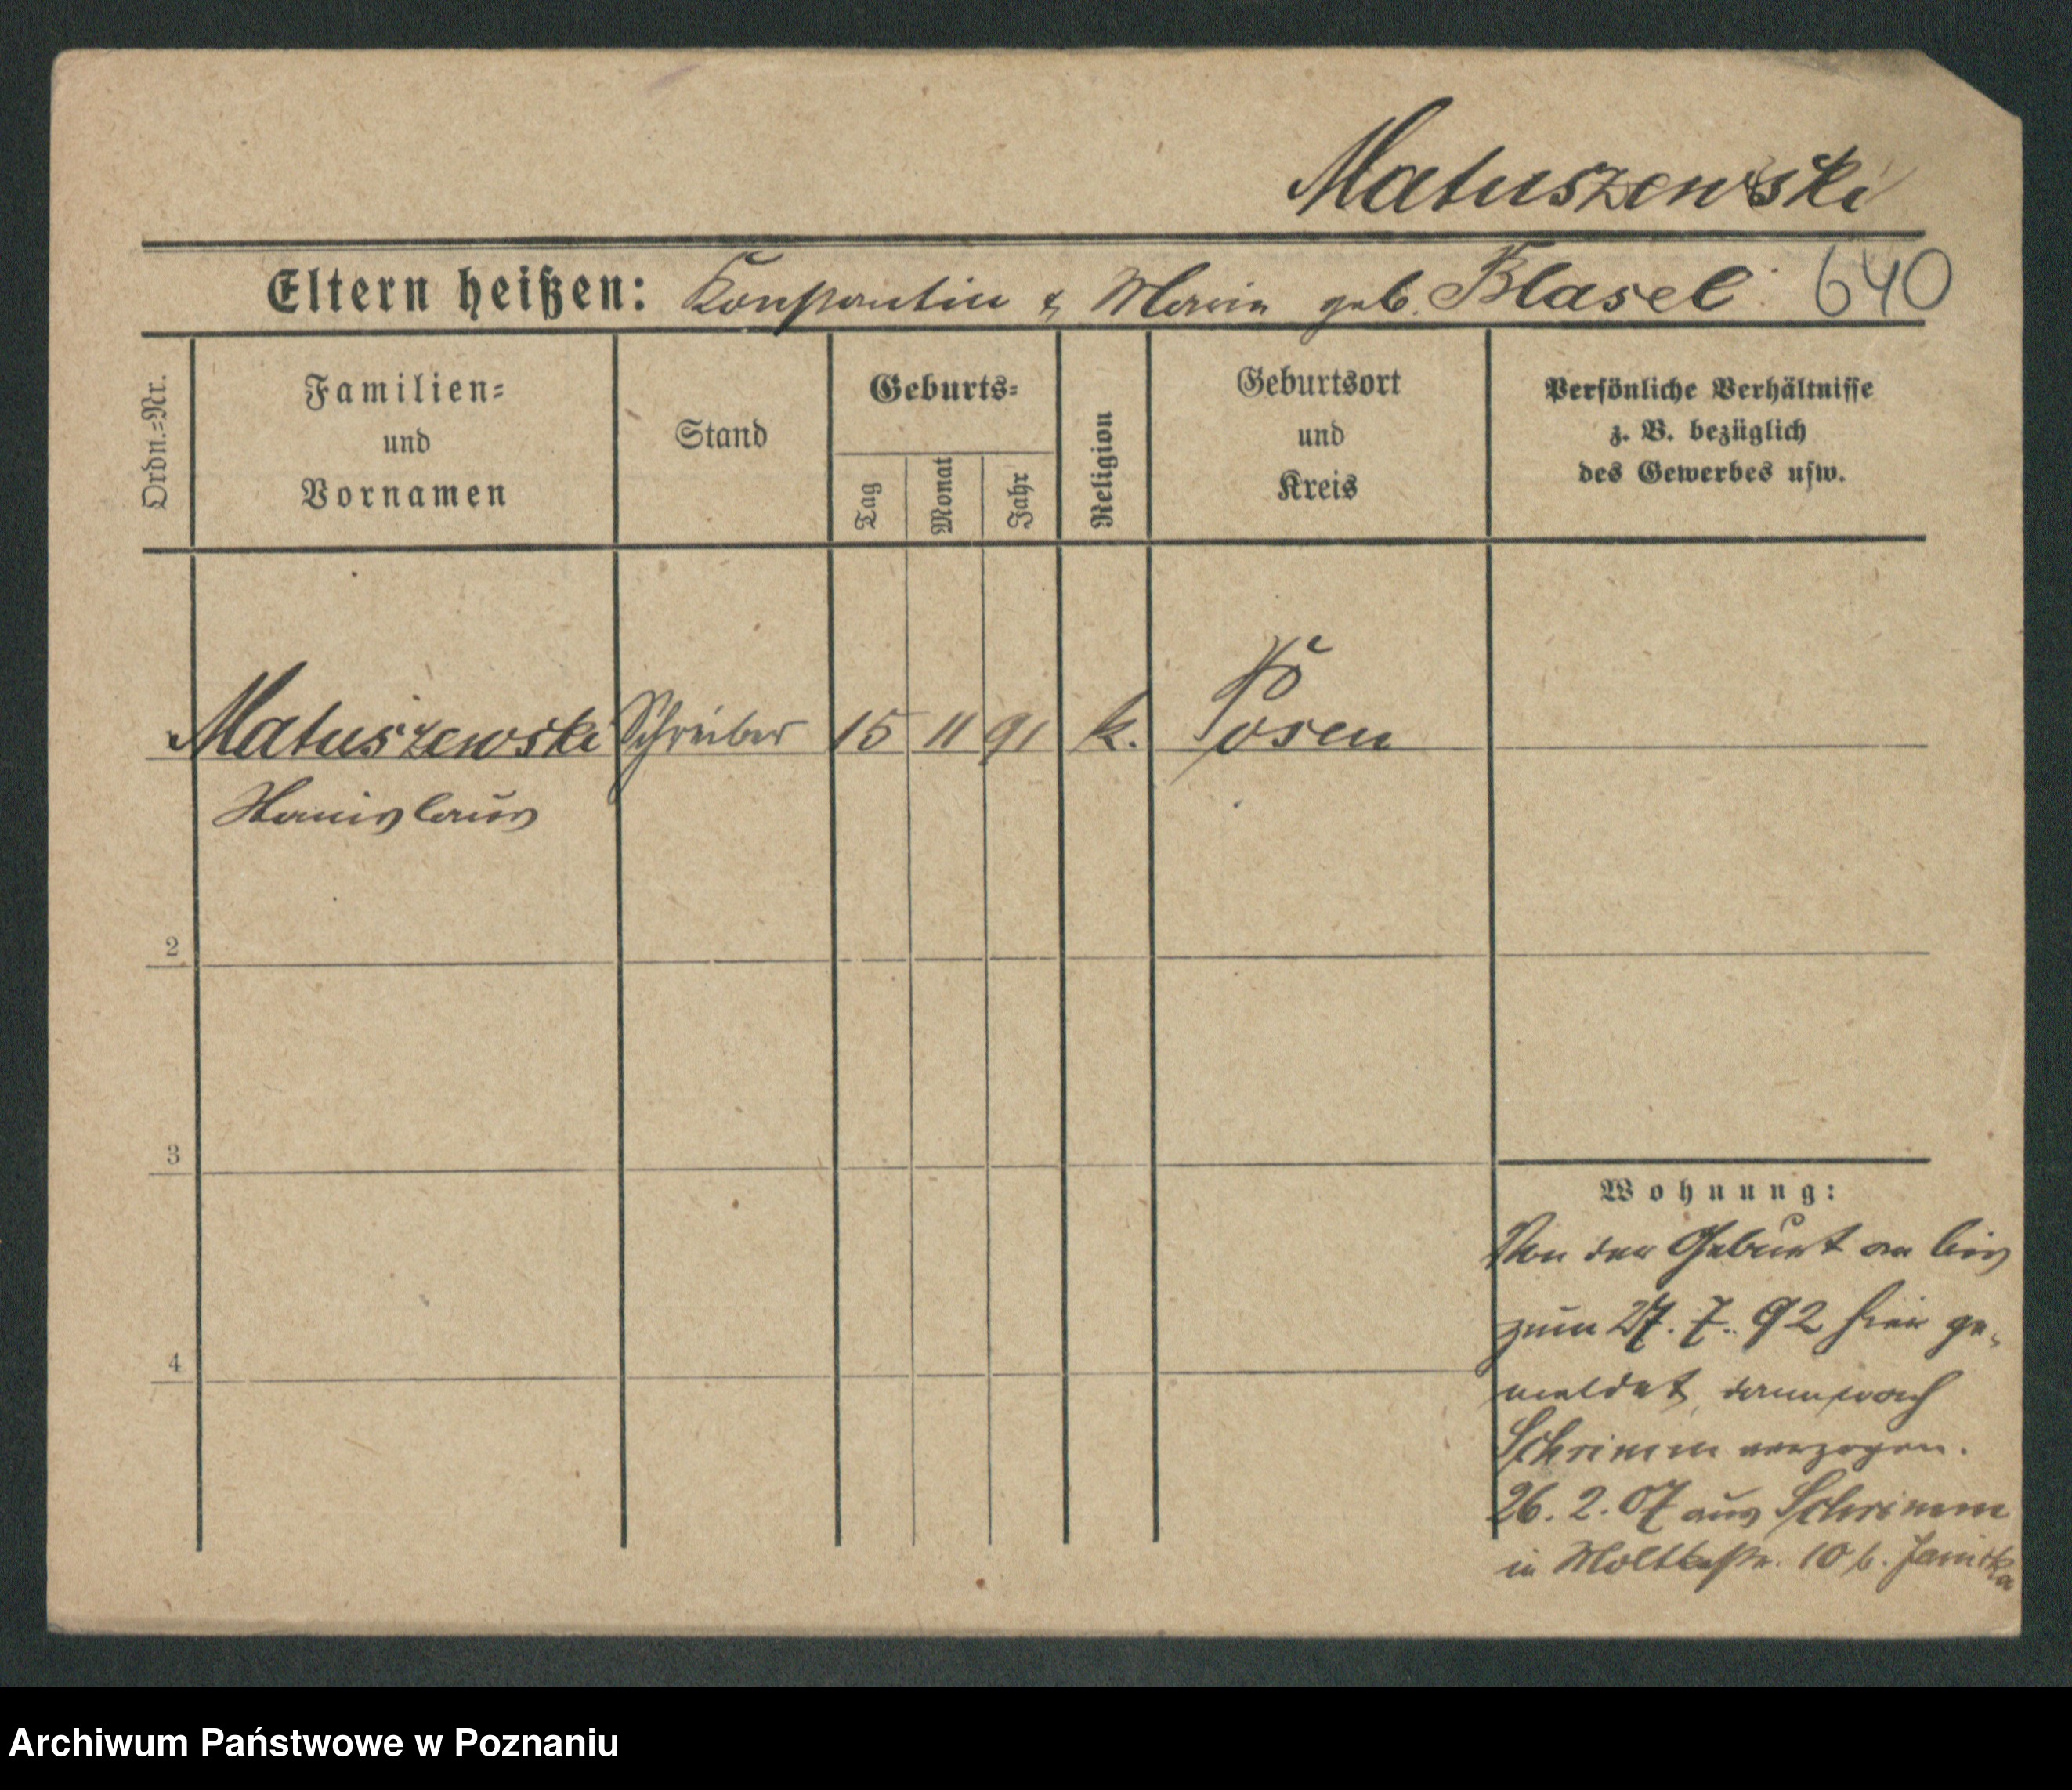 Matuszewski
Eltern heißen: Konstantin & Maria geb. Blasel 640
Ordn.=Nr.
Familien=
und
Vornamen
Stand
Geburts=
Tag
Monat
Jahr
Religion
Geburtsort
und
Kreis
Persönliche Verhältnisse
z. B. bezüglich
des Gewerbes usw.
Matuszewski Schreiber 15 11 91 k. Posen
Stanislaus
2
3
4
Wohnung:
Von der Geburt an bis
zum 27. 7. 92 hier ge-
meldet, dann nach
Schrimm verzogen.
26. 2. 07 aus Schrimm
in Moltkestr. 10 b.
Archiwum Państwowe w Poznaniu